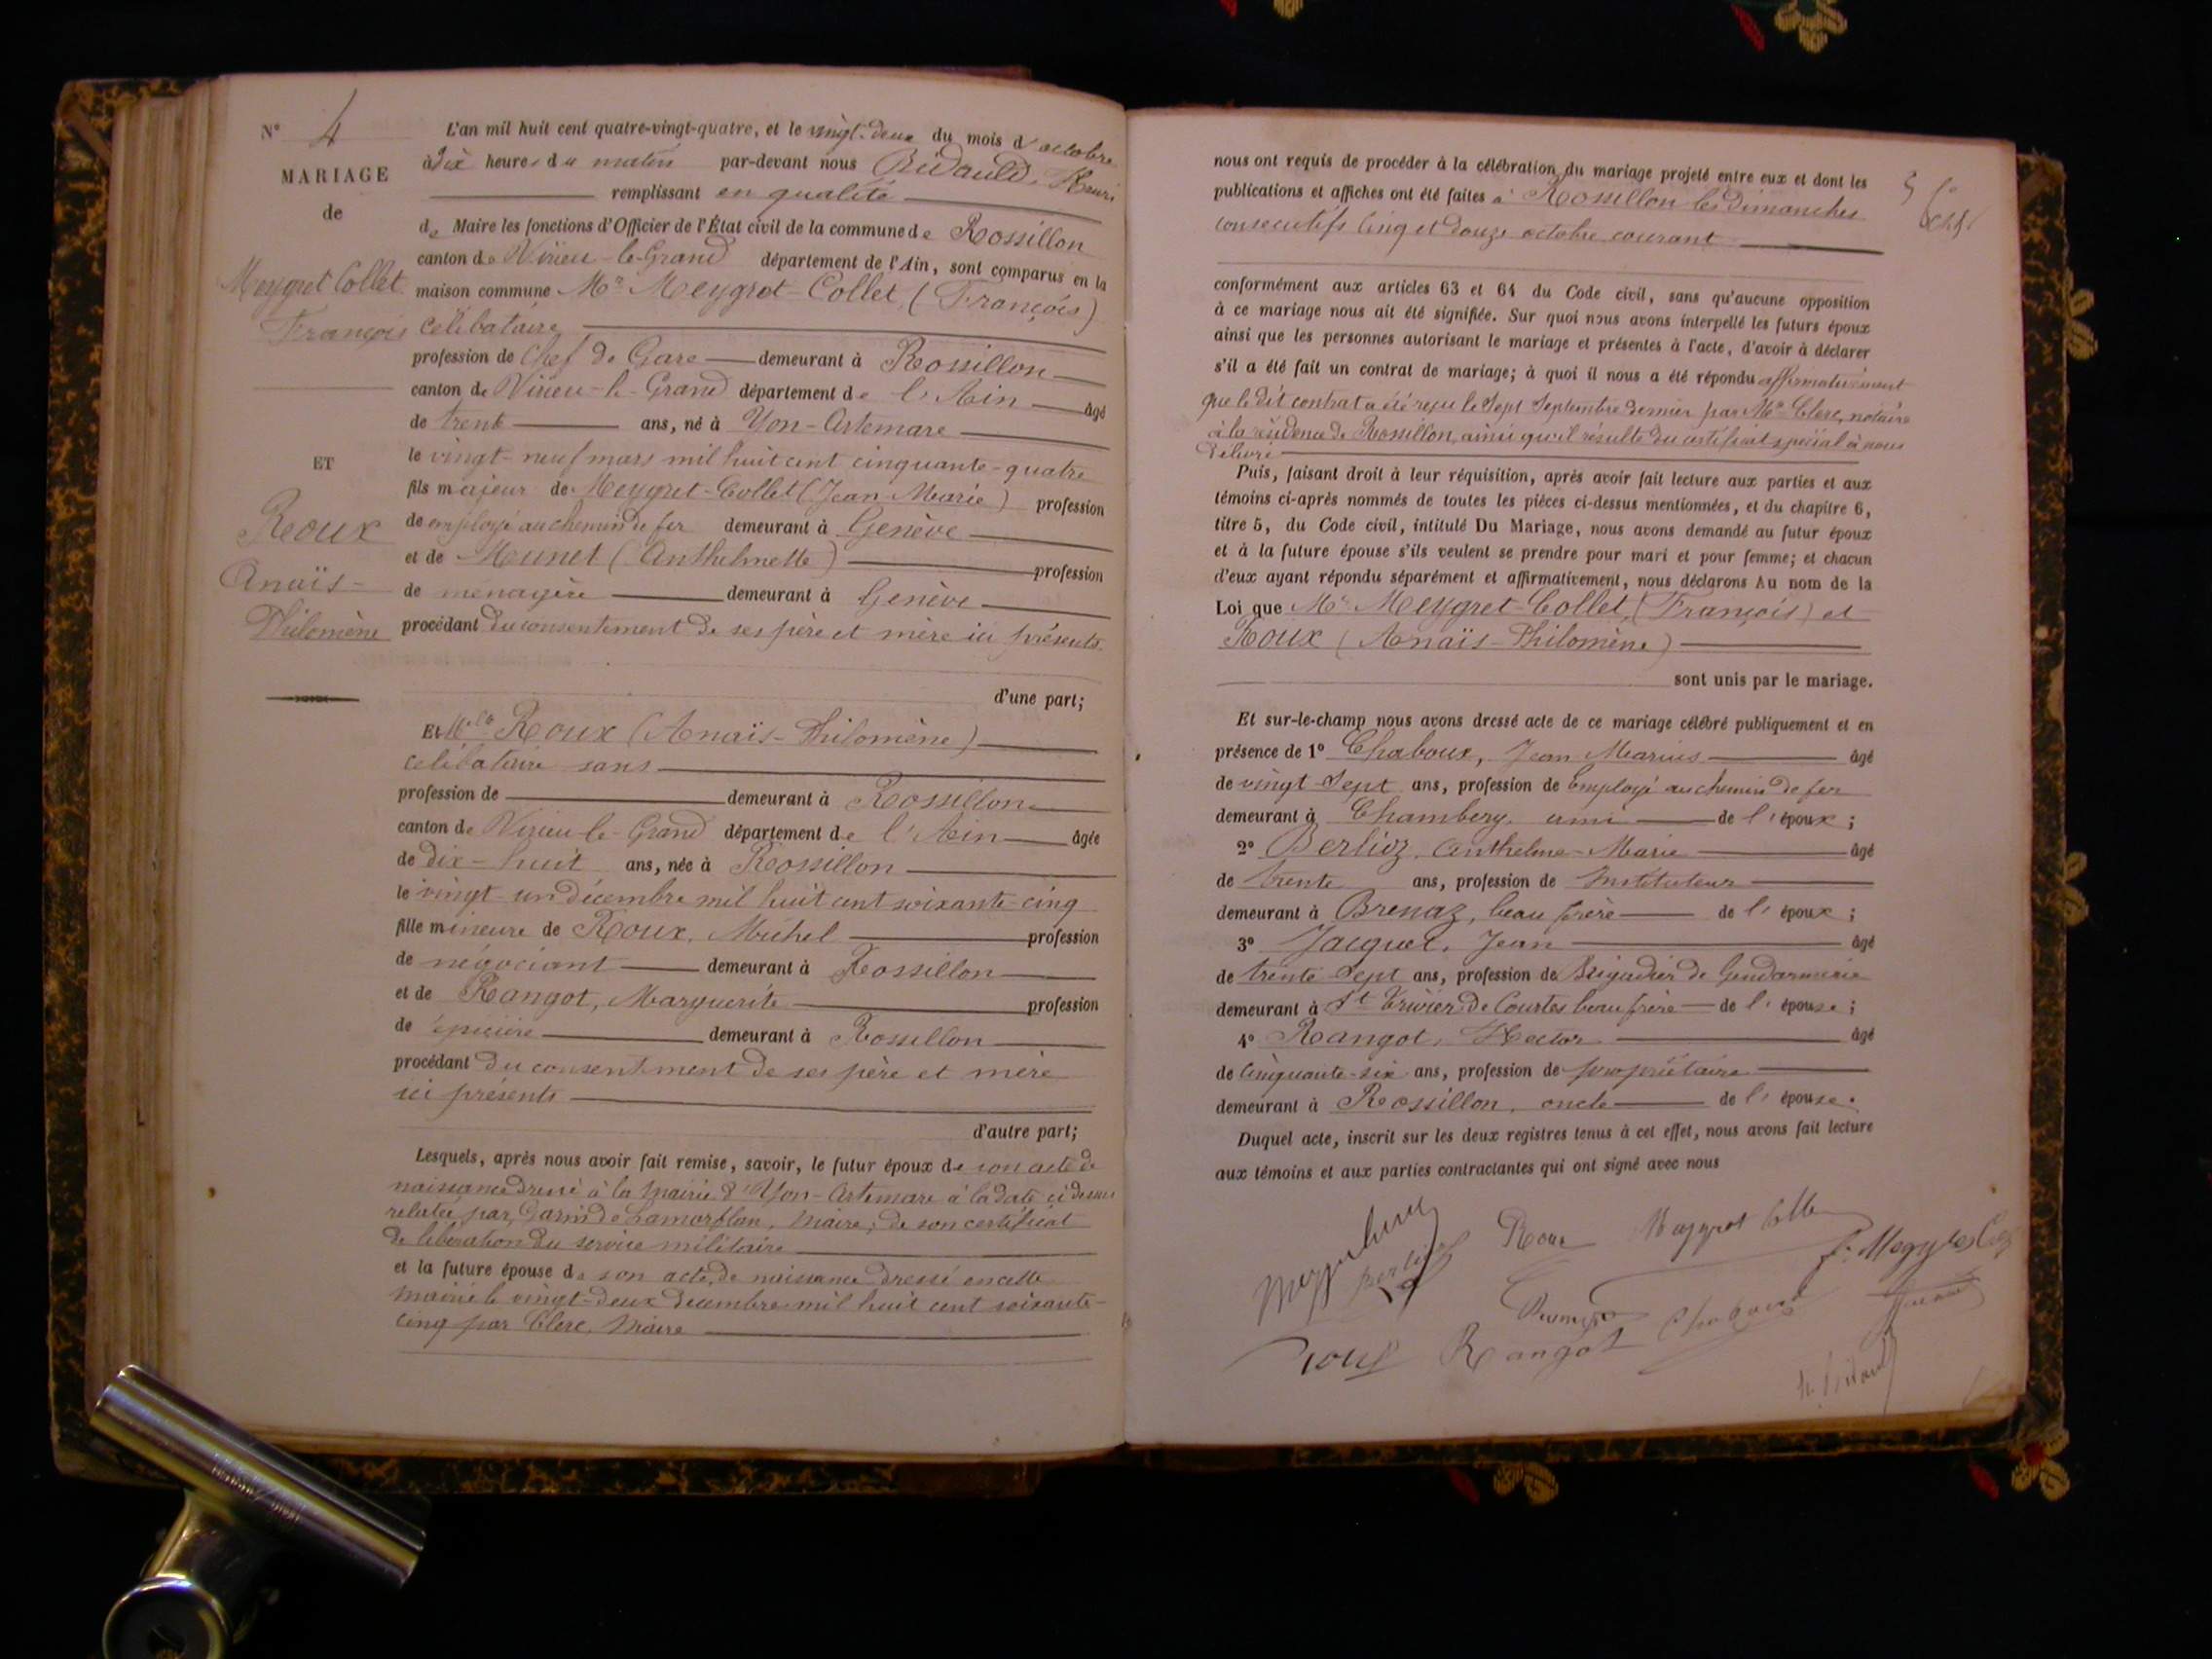 N° 4
MARIAGE
de
Meygret Collet
François
ET
Roux
Anaïs-
Philomène
L'an mil huit cent quatre-vingt-quatre, et le vingt-deux du mois d'octobre
à dix heures du matin par-devant nous Bidauld, Henri
remplissant en qualité
de Maire les fonctions d'Officier de l'État civil de la commune de Rossillon
canton de Virieu-le-Grand département de l'Ain, sont comparus en la
maison commune Mr Meygret-Collet, (François)
célibataire
profession de Chef de Gare demeurant à Rossillon
canton de Virieu-le-Grand département de l'Ain âgé
de trente ans, né à Yon-Artemare
le vingt-neuf mars mil huit cent cinquante-quatre
fils majeur de Meygret-Collet (Jean-Marie) profession
de employé au chemin de fer demeurant à Genève
et de Meunet (Anthelmette) profession
de ménagère demeurant à Genève
procédant du consentement de ses père et mère ici présents
d'une part;
Et Melle Roux (Anaïs-Philomène)
célibataire sans
profession de demeurant à Rossillon
canton de Virieu-le-Grand département de l'Ain âgée
de dix-huit ans, née à Rossillon
le vingt-un décembre mil huit cent soixante-cinq
fille mineure de Roux, Michel profession
de négociant demeurant à Rossillon
et de Rangot, Marguerite profession
de épicière demeurant à Rossillon
procédant du consentement de ses père et mère
ici présents
d'autre part;
Lesquels, après nous avoir fait remise, savoir, le futur époux de son acte de
naissance dressé à la Mairie d'Yon-Artemare à la date ci dessus
relatée par, Garin de Lamorflan, Maire; de son certificat
de libération du service militaire
et la future épouse de son acte de naissance dressé en cette
mairie le vingt-deux décembre mil huit cent soixante-
cinq par Clerc, Maire
nous ont requis de procéder à la célébration du mariage projeté entre eux et dont les
publications et affiches ont été faites à Rossillon les dimanches
consécutifs cinq et douze octobre courant
conformément aux articles 63 et 64 du Code civil, sans qu'aucune opposition
à ce mariage nous ait été signifiée. Sur quoi nous avons interpellé les futurs époux
ainsi que les personnes autorisant le mariage et présentes à l'acte, d'avoir à déclarer
s'il a été fait un contrat de mariage; à quoi il nous a été répondu affirmativement
que le dit contrat a été reçu le sept Septembre dernier par Me Clerc, notaire
à la résidence de Rossillon, ainsi qu'il résulte du certificat spécial à nous
délivré
Puis, faisant droit à leur réquisition, après avoir fait lecture aux parties et aux
témoins ci-après nommés de toutes les pièces ci-dessus mentionnées, et du chapitre 6,
titre 5, du Code civil, intitulé Du Mariage, nous avons demandé au futur époux
et à la future épouse s'ils veulent se prendre pour mari et pour femme; et chacun
d'eux ayant répondu séparément et affirmativement, nous déclarons Au nom de la
Loi que Mr Meygret-Collet, (François) et
Roux (Anaïs-Philomène)
sont unis par le mariage.
Et sur-le-champ nous avons dressé acte de ce mariage célébré publiquement et en
présence de 1° Chaboux, Jean Marius âgé
de vingt-sept ans, profession de Employé au chemin de fer
demeurant à Chambéry, ami de l'époux;
2° Berlioz, Anthelme-Marie âgé
de trente ans, profession de Instituteur
demeurant à Brenaz, beau frère de l'époux;
3° Jacquet, Jean âgé
de trente-sept ans, profession de Brigadier de Gendarmerie
demeurant à St Trivier de Courtes beau frère de l'épouse;
4° Rangot, Hector âgé
de cinquante-six ans, profession de propriétaire
demeurant à Rossillon, oncle de l'épouse.
Duquel acte, inscrit sur les deux registres tenus à cet effet, nous avons fait lecture
aux témoins et aux parties contractantes qui ont signé avec nous
Roux
Berlioz
Rangot
Chaboux
h. Bidauld